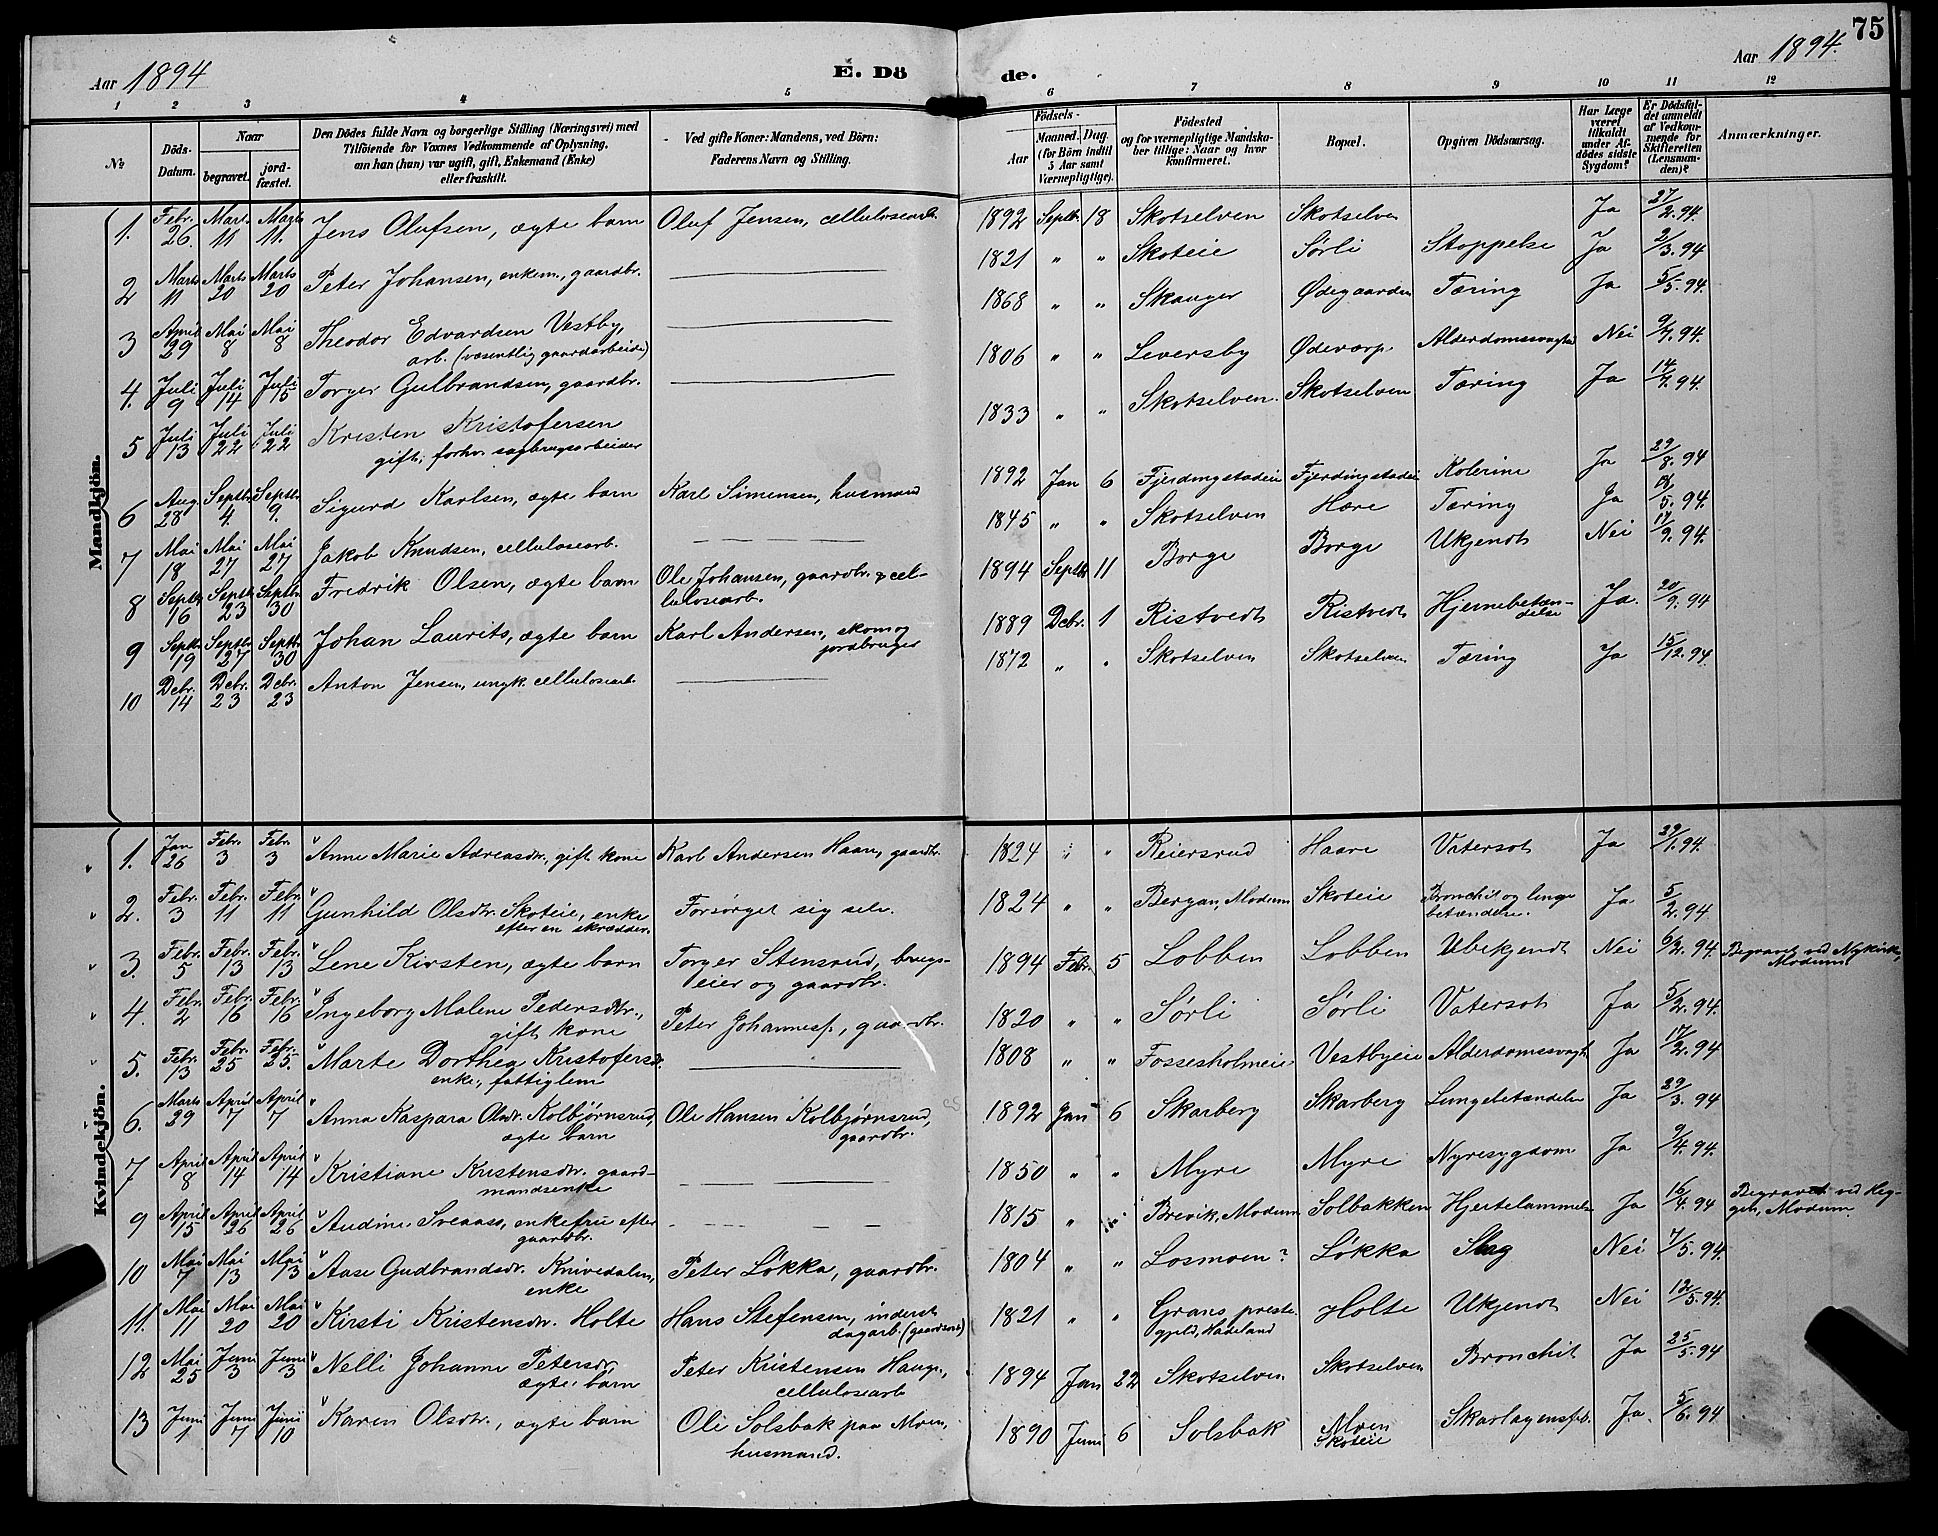 75
Aar 1894
E. Dö
de.
Aar 1894.
1 2 3 4 5 6 7 8 9 10 11 12
No
Döds-
Datum.
Naar
begravet.
jord-
fæstet.
Den Dödes fulde Navn og borgerlige Stilling (Næringsvei) med
Tilföiende for Voxnes Vedkommende af Oplysning,
om han (hun) var ugift, gift, Enkemand (Enke)
eller fraskilt.
Ved gifte Koner: Mandens, ved Börn:
Faderens Navn og Stilling.
Födsels-
Aar
Maaned. Dag.
(for Börn indtil
5 Aar samt
Værnepligtige).
Födested
og for værnepligtige Mandska-
ber tillige: Naar og hvor
konfirmeret.
Bopæl.
Opgiven Dödsaarsag.
Har Læge
været
tilkaldt
under Af-
dödes sidste
Sygdom?
Er Dödsfal-
det anmeldt
af Vedkom-
mende for
Skifteretten
(Lensman-
den)?
Anmærkninger.
Mandkjön.
1. Febr. 26. Marts 11 Marts 11. Jens Olufsen, ægte barn Oluf Jensen, cellulosearb. 1892 Septbr. 18 Skotselven Skotselven Ja 27/2. 94.
2 Marts 11 Marts 20 Marts 20 Peter Johansen, enkem., gaardbr. 1821 " " Skoteie Sørli Stoppelse Ja 2/3. 94.
3 April 29 Mai 8 Mai 8 Theodor Edvardsen Vestby,
arb. (væsentlig gaardarbeide) 1868 " " Skauger Ødegaarden Tæring Ja 5/5. 94.
4. Juli 9 Juli 14 Juli 15 Torger Gulbrandsen, gaardbr. 1806 " " Leversby Ødevarp Alderdomssvaghed Nei 9/7. 94.
5 Juli 13 Juli 22 Juli 22 Kristen Kristofersen
gift, forhv. sagbrugsarbeider 1833 " " Skotselven. Skotselven Tæring Ja 14/7. 94.
6 Aug. 28 Septbr. 4. Septbr. 9. Sigurd Karlsen, ægte barn Karl Simensen, husmand 1892 Jan 6 Fjerdingstadeie Fjerdingstadeie Kolerine Ja 29/8. 94
7 Mai 18 Mai 27 Mai 27 Jakob Knudsen, cellulosearb. 1845 " " Skotselven Hære Tæring Ja 18/5. 94.
8 Septbr. 16 Septbr. 23 Septbr. 30 Fredrik Olsen, ægte barn Ole Johansen, gaardbr. & cel-
lulosearb. 1894 Septbr. 11 Borge Borge Ukjendt Nei 17/9. 94.
9 Septbr. 19 Septbr. 27 Septbr. 30 Johan Laurits, ægte barn Karl Andersen, skom. og
jordbruger 1889 Debr. 1 Ristvedt Ristvedt Hjernebetæn-
delse Ja. 20/9. 94
10 Debr. 14 Debr. 23 Debr. 23 Anton Jensen, ungk. cellulosearb. 1872 " " Skotselven Skotselven Tæring Ja 15/12. 94.
Kvindekjön.
1. Jan 26 Febr. 3 Febr. 3 " Anne Marie Adreasdtr. gift kone Karl Andersen Haare, gaardbr. 1824 " " Reiersrud Haare Vatersot Ja 29/1. 94.
2. Febr. 3 Febr. 11 Febr. 11 " Gunhild Olsdtr. Skoteie, enke
efter en skrædder. Forsørget sig selv. 1824 " " Bergan, Modum Skoteie Bronchit og lunge
betændelse. Ja 5/2. 94
3. Febr. 5 Febr. 13 Febr. 13 " Lene Kirsten, ægte barn Torger Stensrud, brugs-
eier og gaardbr. 1894 Febr. 5 Lobben Lobben Ubekjendt Nei 6/2. 94. Begravet ved Nykirke,
Modum.
4. Febr. 2 Febr. 16 Febr. 16 " Ingeborg Malene Pedersdtr.,
gift kone Peter Johanness., gaardbr. 1820 " " Sørli Sørli Vatersot Ja 5/2. 94.
5. Febr. 13 Febr. 25 Febr. 25. " Marte Dorthea Kristofersdtr.
enke, fattiglem 1808 " " Fossesholmeie Vestbyeie Alderdomssvagh. Ja 17/2. 94
6. Marts 29 April 7 April 7 " Anna Kaspara Olsdtr. Kolbjørnsrud,
ægte barn Ole Hansen Kolbjørnsrud,
gaardbr. 1892 Jan 6 Skarberg Skarberg Lungebetændelse Ja 29/3. 94
7 April 8 April 14 April 14 " Kristiane Kristensdtr. gaard-
mandsenke 1850 " " Myre Myre Nyresygdom Ja 9/4. 94.
9 April 15 April 26 April 26 " Andine Sveaass, enkefru efter
gaardbr. 1815 " " Brevik, Modum Solbakken Hjertelammelse Ja 16/4. 94 Begravet ved Heg-
geb, Modum.
10 Mai 7 Mai 13 Mai 13 " Aase Gudbrandsdr. Knivedalen,
enke Peter Løkka, gaardbr. 1804 " " Losmoen? Løkka Slag Nei 7/5. 94.
11. Mai 11 Mai 20 Mai 20 " Kirsti Kristensdtr. Holte Hans Stefensen, inderst
dagarb. (gaardsarb) 1821 " " Grans preste
gjeld, Hadeland Holte Ukjendt Nei 12/5. 94.
12 Mai 25 Juni 3 Juni 3 " Nelli Johanne Petersdtr.
ægte barn Peter Kristensen Haug.,
cellulosearb 1894 Jan 22 Skotselven Skotselven Bronchit Ja 25/5. 94
13 Juni 1 Juni 7 Juni 10 " Karen Olsdtr., ægte barn Ole Solsbak paa Moen,
husmand. 1890 Juni 6 Solsbak Moen
Skoteie Skarlagensfeb. Ja. 5/6. 94